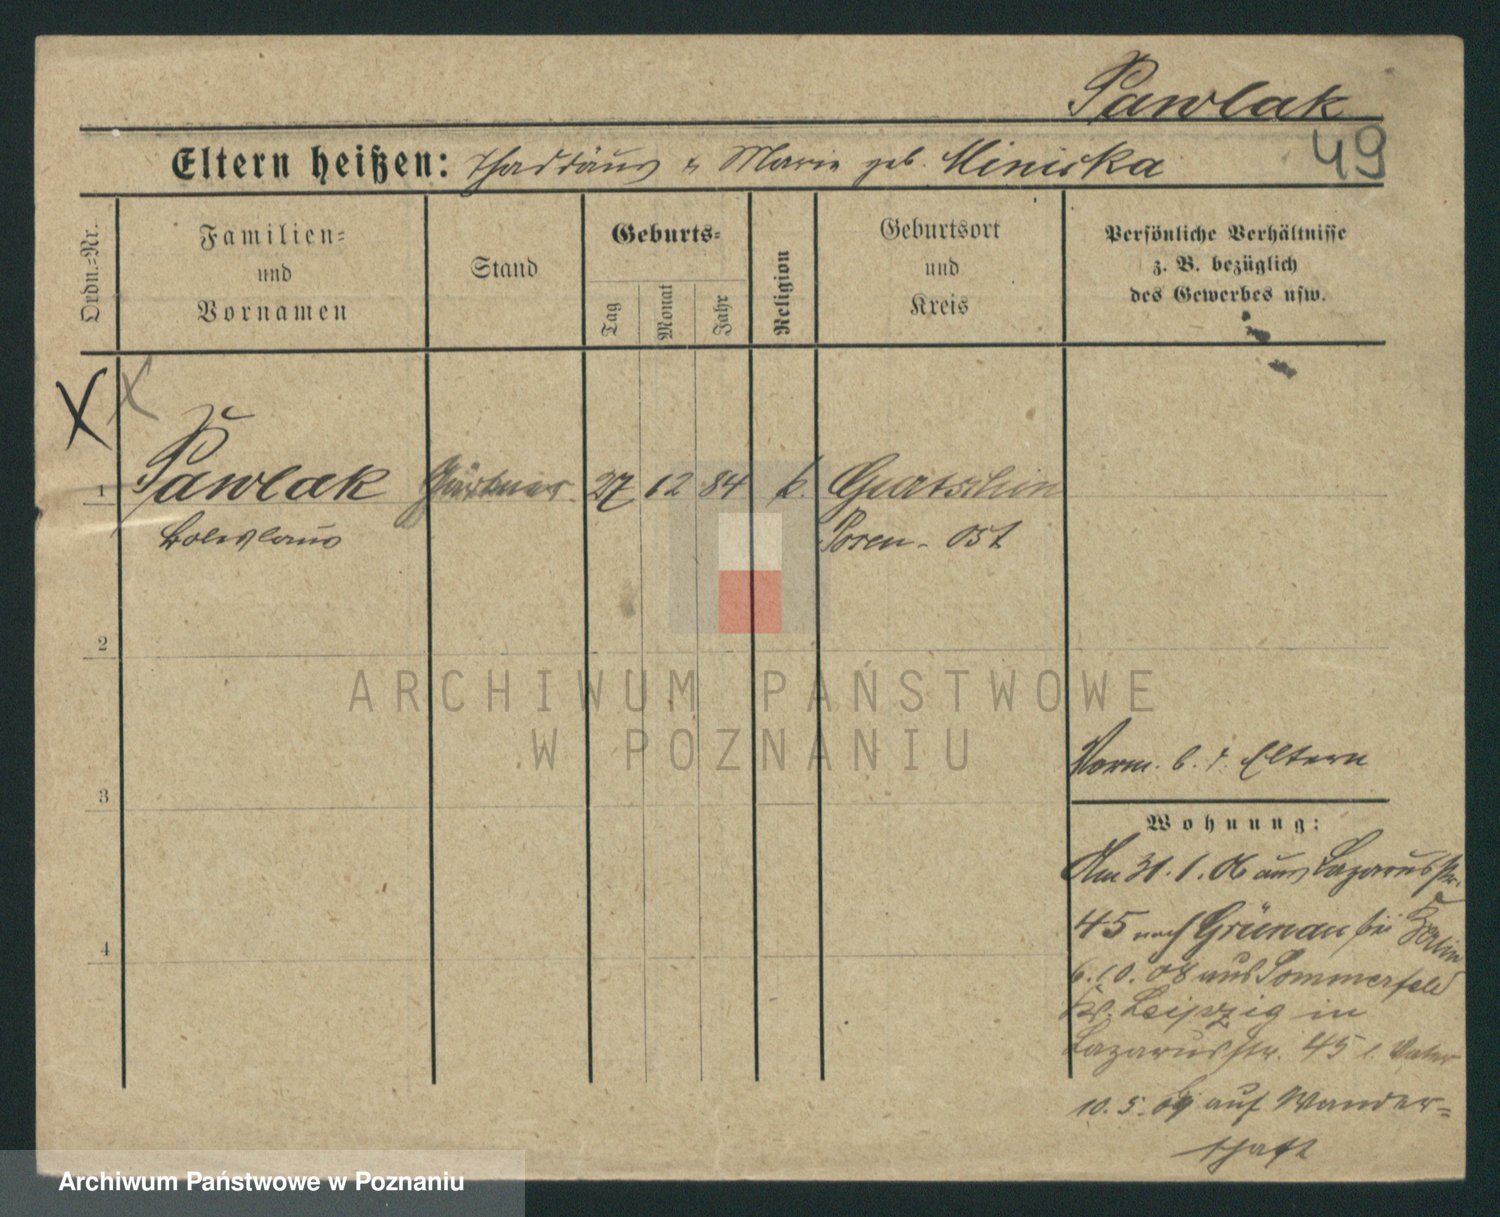 Pawlak
49
Eltern heißen: Thaddäus & Marie geb. Miniska
Ordn.-Nr.
Familien-
und
Vornamen
Stand
Geburts-
Tag
Monat
Jahr
Religion
Geburtsort
und
Kreis
Persönliche Verhältnisse
z. B. bezüglich
des Gewerbes usw.
X X
1 Pawlak Gärtner 27 12 84 k. Gurtschin
Boleslaus Posen-Ost
2
ARCHIWUM PAŃSTWOWE
W POZNANIU
3
Vorm. b. d. Eltern
Wohnung:
Am 31.1.06 aus Lazarusstr.
45 nach Grünau bei Berlin
4
6.10.08 aus Sommerfeld
Kr. Leipzig in
Lazarusstr. 45 b. Vater
10.5.09 auf Wander-
schaft
Archiwum Państwowe w Poznaniu